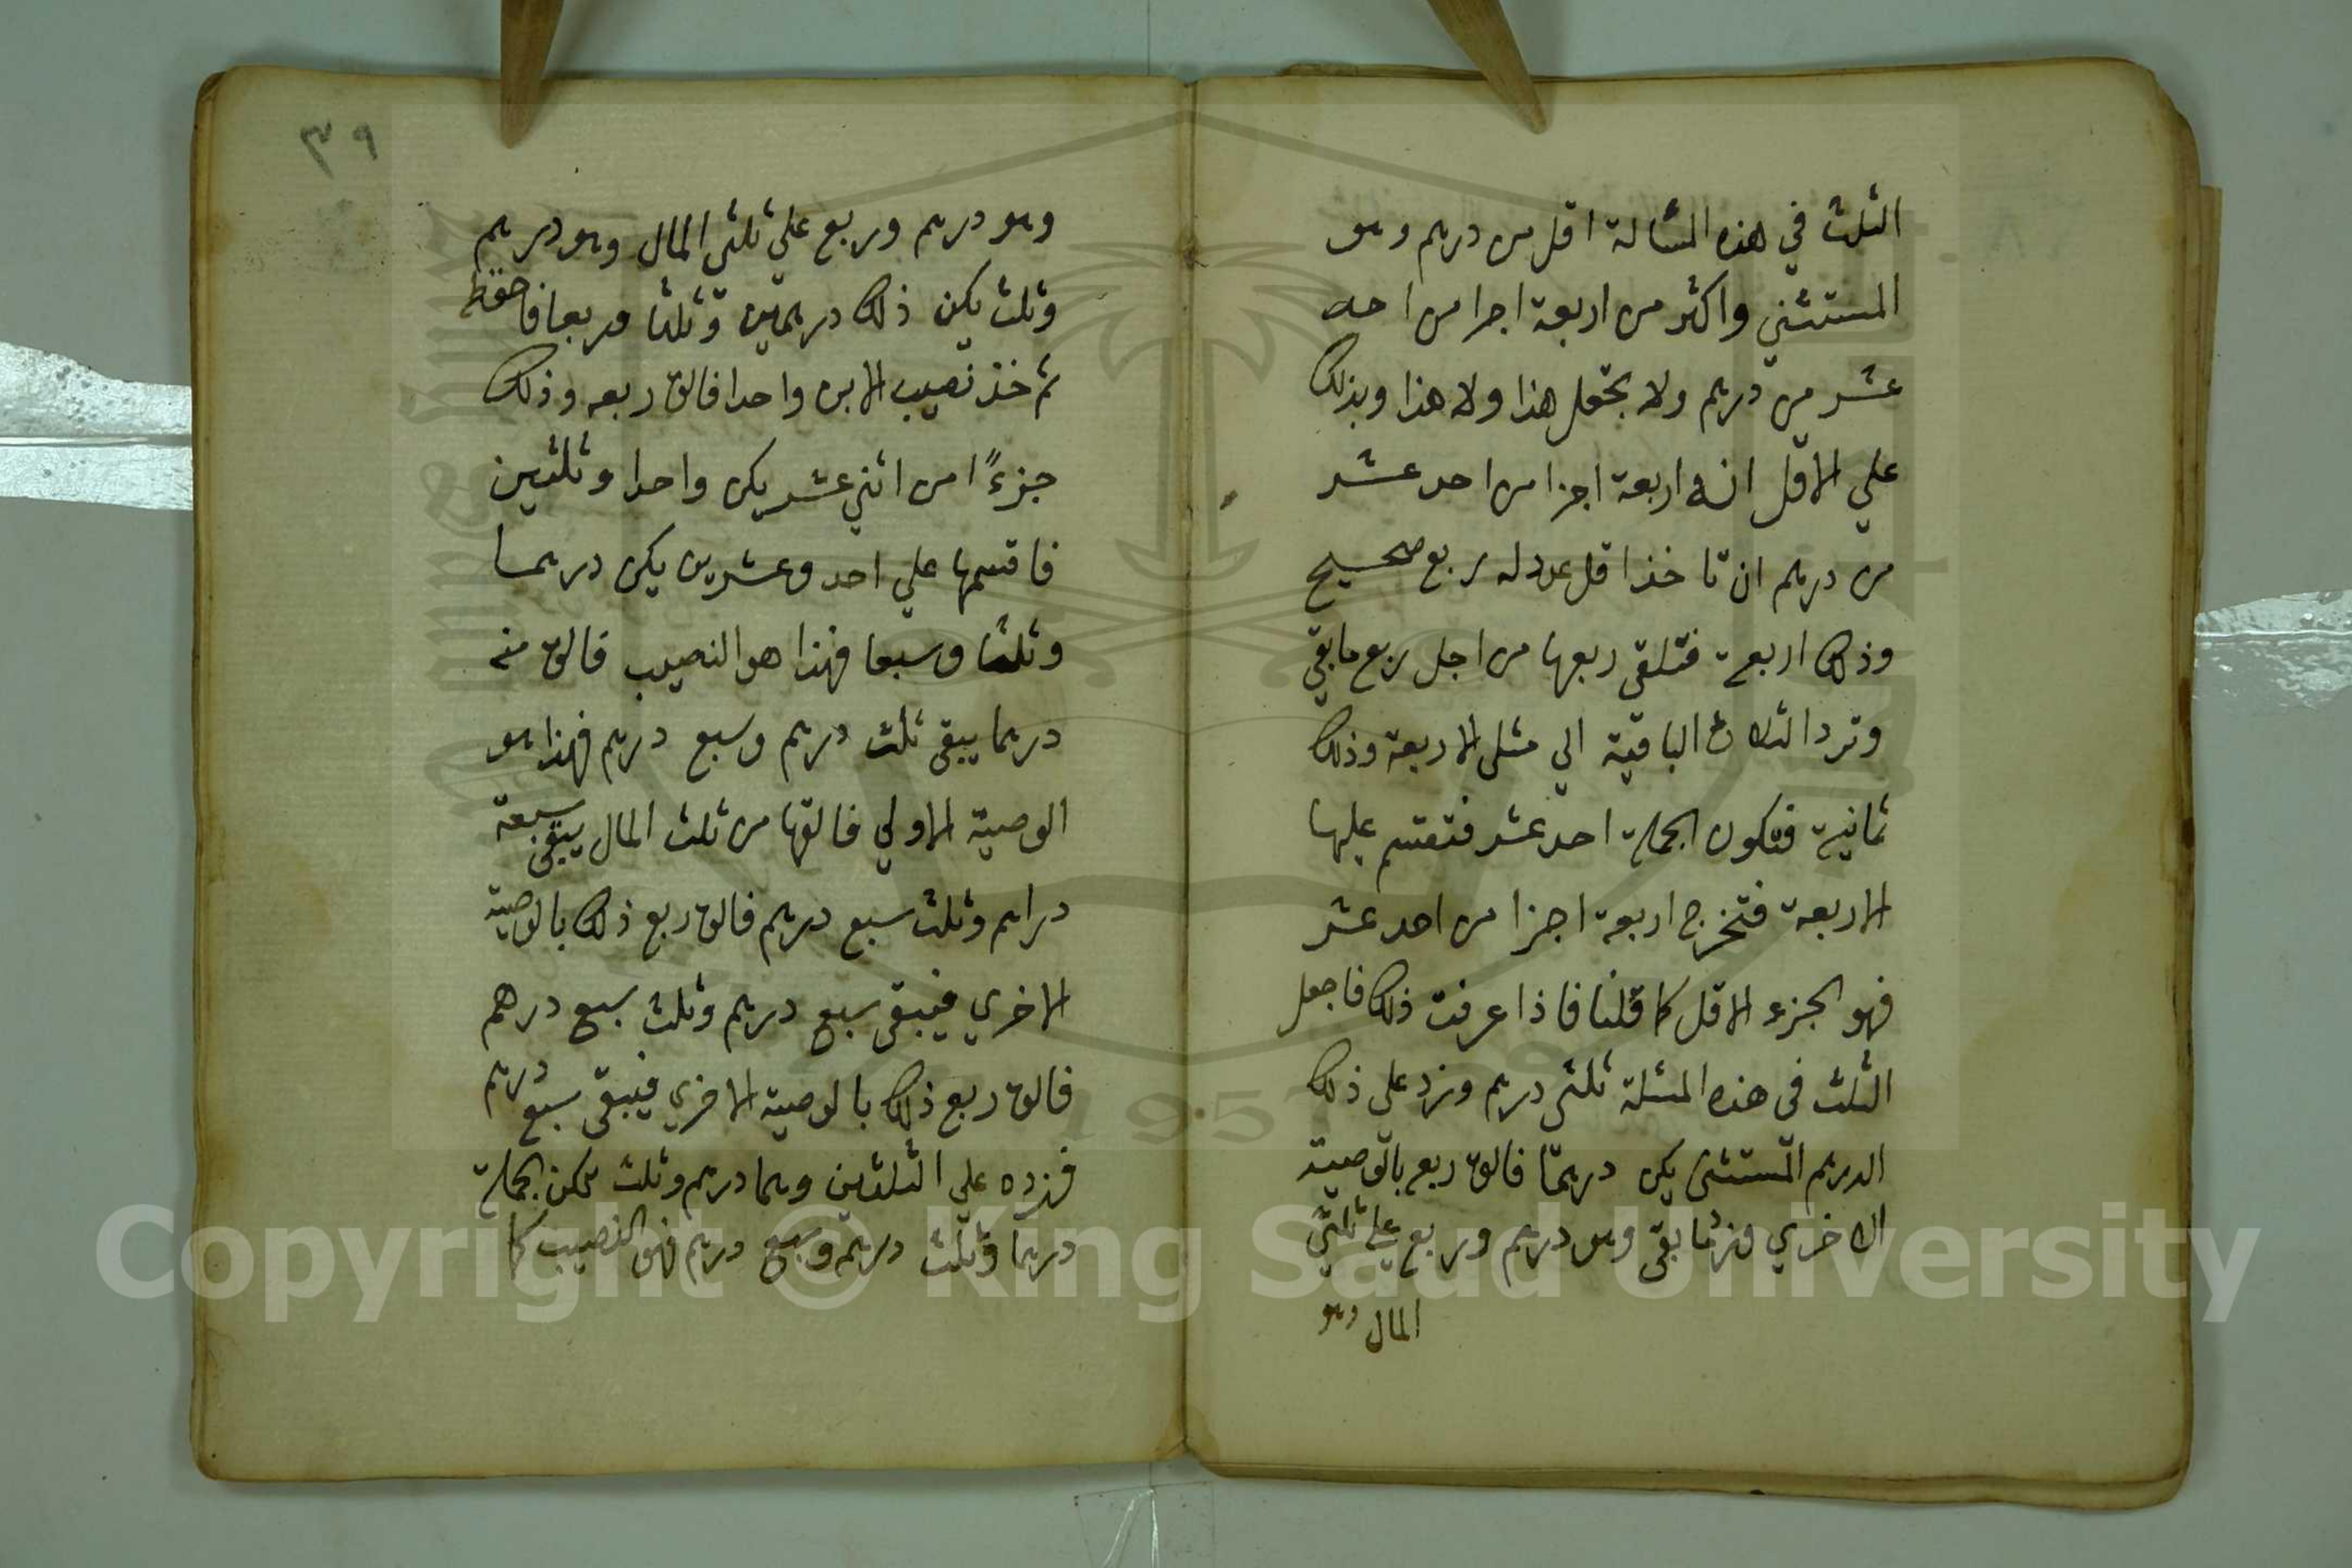 الثلث في هذه المسالة اقل من درهم وهو
المستثني واكثر من اربعة اجزا من احد
عشر من درهم ولا بحقل هذا ولا هذا وبذلك
علي الاقل انه اربعة اجزا من احد عشر
من درهم ان تاخذ اقل عدد له ربع صحيح
وذلك اربعة فتلقي ربعها من اجل ربع مابقي
وتزد الثلاث الباقية الي مثلي الاربعة وذلك
ثمانية فتكون الجملة احد عشر فتقسم عليها
الاربعة فتخرج اربعة اجزا من احد عشر
فهو الجزء الاقل كما قلنا فاذا عرفت ذلك فاجعل
الثلث في هذه المسئلة ثلثي درهم وزد علي ذلك
الدرهم المستثني يكن درهما فالق ربع بالوصية
الاخري وزد ما بقي وهو درهم وربع علي ثلثي
المال وهو
٣٩
وهو درهم وربع علي ثلثي المال وهو درهم
وثلث يكن ذلك درهمين وثلثا وربعا فاحفظ
ثم خذ نصيب الابن واحدا فالق ربعه وذلك
جزءًا من اثني عشر يكن واحدا وثلثين
فاقسمها علي احد وعشرين يكن درهما
وثلثا وسبعا فهذا هو النصيب فالق منه
درهما يبقي ثلث درهم وسبع درهم فهذا هو
الوصية الاولي فالقها من ثلث المال يبقي سبعة
دراهم وثلث سبع درهم فالق ربع ذلك بالوصية
الاخري فيبقي سبع درهم وثلث سبع درهم
فالق ربع ذلك بالوصية الاخري فيبقي سبع درهم
فزده علي الثلثين وهما درهم وثلث تكن الجملة
درهما وثلث درهم وسبع درهم فهو النصيب كما
Copyright © King Saud University